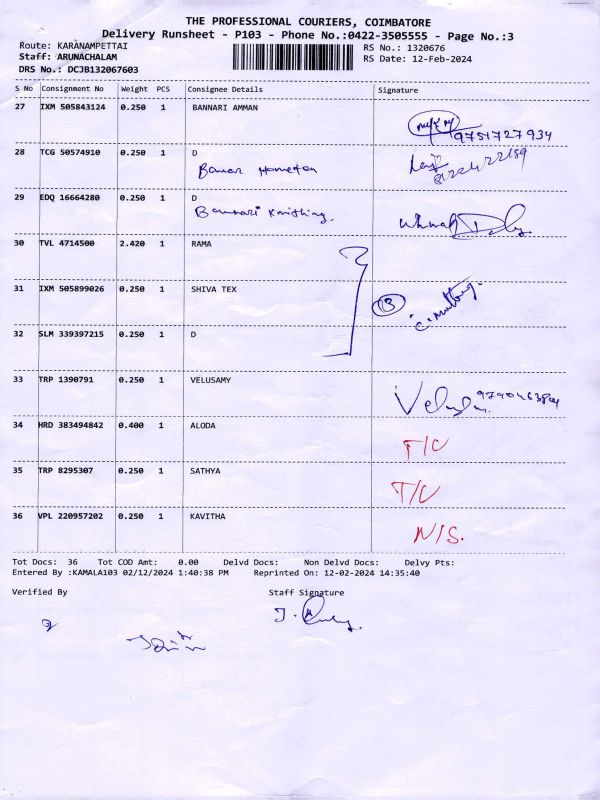 THE PROFESSIONAL COURIERS, COIMBATORE
Delivery Runsheet - P103 - Phone No.:0422-3505555 - Page No.:3
Route: KARANAMPETTAI
RS No.: 1320676
Staff: ARUNACHALAM
RS Date: 12-Feb-2024
DRS No.: DCJB132067603
S No Consignment No Weight PCS Consignee Details Signature
27 IXM 505843124 0.250 1 BANNARI AMMAN
9751727934
28 TCG 50574910 0.250 1 D
29 EDQ 16664280 0.250 1 D
Bannari Knitting.
30 TVL 4714500 2.420 1 RAMA
31 IXM 505899026 0.250 1 SHIVA TEX
3
32 SLM 339397215 0.250 1 D
33 TRP 1390791 0.250 1 VELUSAMY
34 HRD 383494842 0.400 1 ALODA
T/C
35 TRP 8295307 0.250 1 SATHYA
T/C
36 VPL 220957202 0.250 1 KAVITHA
N/S.
Tot Docs: 36 Tot COD Amt: 0.00 Delvd Docs: Non Delvd Docs: Delvy Pts:
Entered By :KAMALA103 02/12/2024 1:40:38 PM Reprinted On: 12-02-2024 14:35:40
Verified By Staff Signature